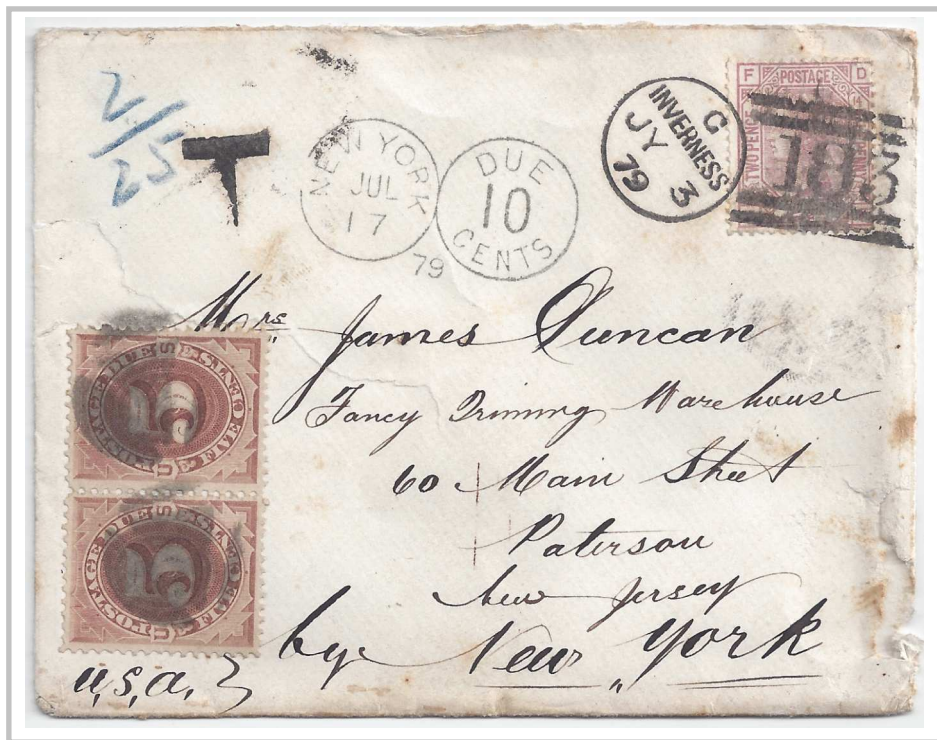 2/25
T
NEW YORK
JUL
17
79
DUE
10
CENTS
G
INVERNESS
JY 3
79
F POSTAGE D
14
TWO PENCE
183
Mrs James Duncan
Fancy Triming Warehouse
60 Main Street
Paterson
New Jersey
bye New York
U.S.A.
POSTAGE DUE
5
FIVE CENTS
U S
POSTAGE DUE
5
FIVE CENTS
U S